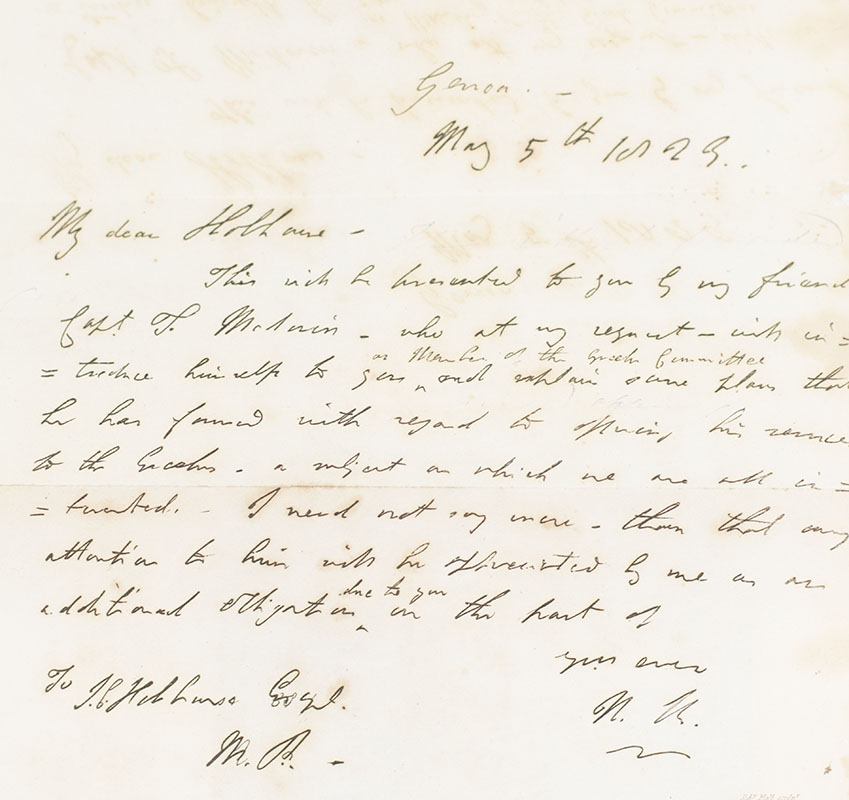 Genoa. -
May 5th 1823..
My dear Hobhouse -
This will be presented to you by my friend
Capt. T. Medwin - who at my request - will in=
as Member of the Greek Committee
=troduce himself to you ^ and explain some plans that
he has formed with regard to offering his service
to the Greeks. - a subject on which we are all in=
=terested. - I need not say more - than that any
attention to him will be appreciated by me as an
due to you
additional obligation ^ on the part of
yrs ever
N. B.
To J. C. Hobhouse Esqre.
M. P. -